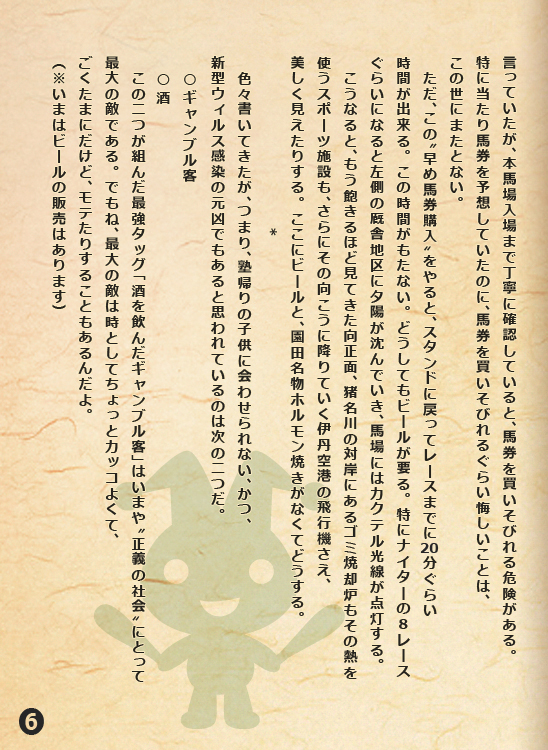 言っていたが、本馬場入場まで丁寧に確認していると、馬券を買いそびれる危険がある。
特に当たり馬券を予想していたのに、馬券を買いそびれるぐらい悔しいことは、
この世にまたとない。
ただ、この〝早め馬券購入〟をやると、スタンドに戻ってレースまでに20分ぐらい
時間が出来る。この時間がもたない。どうしてもビールが要る。特にナイターの８レース
ぐらいになると左側の厩舎地区に夕陽が沈んでいき、馬場にはカクテル光線が点灯する。
こうなると、もう飽きるほど見てきた向正面、猪名川の対岸にあるゴミ焼却炉もその熱を
使うスポーツ施設も、さらにその向こうに降りていく伊丹空港の飛行機さえ、
美しく見えたりする。ここにビールと、園田名物ホルモン焼きがなくてどうする。
＊
色々書いてきたが、つまり、塾帰りの子供に会わせられない、かつ、
新型ウィルス感染の元凶でもあると思われているのは次の二つだ。
○ギャンブル客
○酒
この二つが組んだ最強タッグ「酒を飲んだギャンブル客」はいまや〝正義の社会〟にとって
最大の敵である。でもね、最大の敵は時としてちょっとカッコよくて、
ごくたまにだけど、モテたりすることもあるんだよ。
(※いまはビールの販売はあります)
6